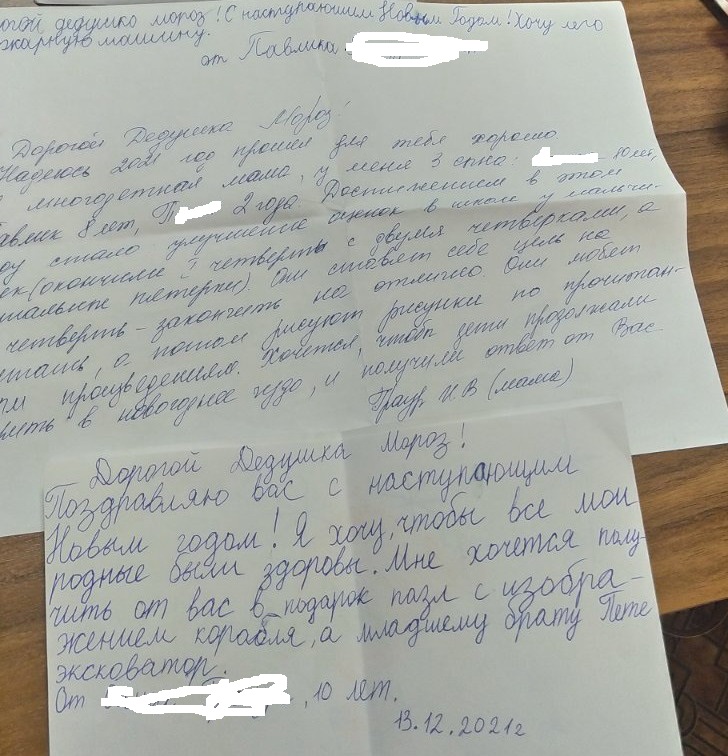 огой дедушко мороз! С наступающим Новым Годом! Хочу лего
жарную машину.
от Павлика
Дорогой Дедушка Мороз!
Надеюсь 2021 год прошёл для тебя хорошо
многодетная мама, у меня 3 сына: 10 лет,
авлик 8 лет, П 2 года. Достижением в этом
оду стало улучшение оценок в школе у мальчи-
ек (окончили I четверть с двумя четвёрками, а
тальные пятерки). Они ставят себе цель на
четверть - закончить на отлично. Они любят
итать, а потом рисуют рисунки по прочитан-
ым произведениям. Хочется, чтобы дети продолжали
ерить в новогоднее чудо, и получили ответ от Вас
Граур И В (мама)
Дорогой Дедушка Мороз!
Поздравляю вас с наступающим
Новым годом! Я хочу, чтобы все мои
родные были здоровы. Мне хочется полу-
чить от вас в подарок пазл с изобра-
жением корабля, а младшему брату Пете
эксковатор.
От , 10 лет.
13.12.2021г